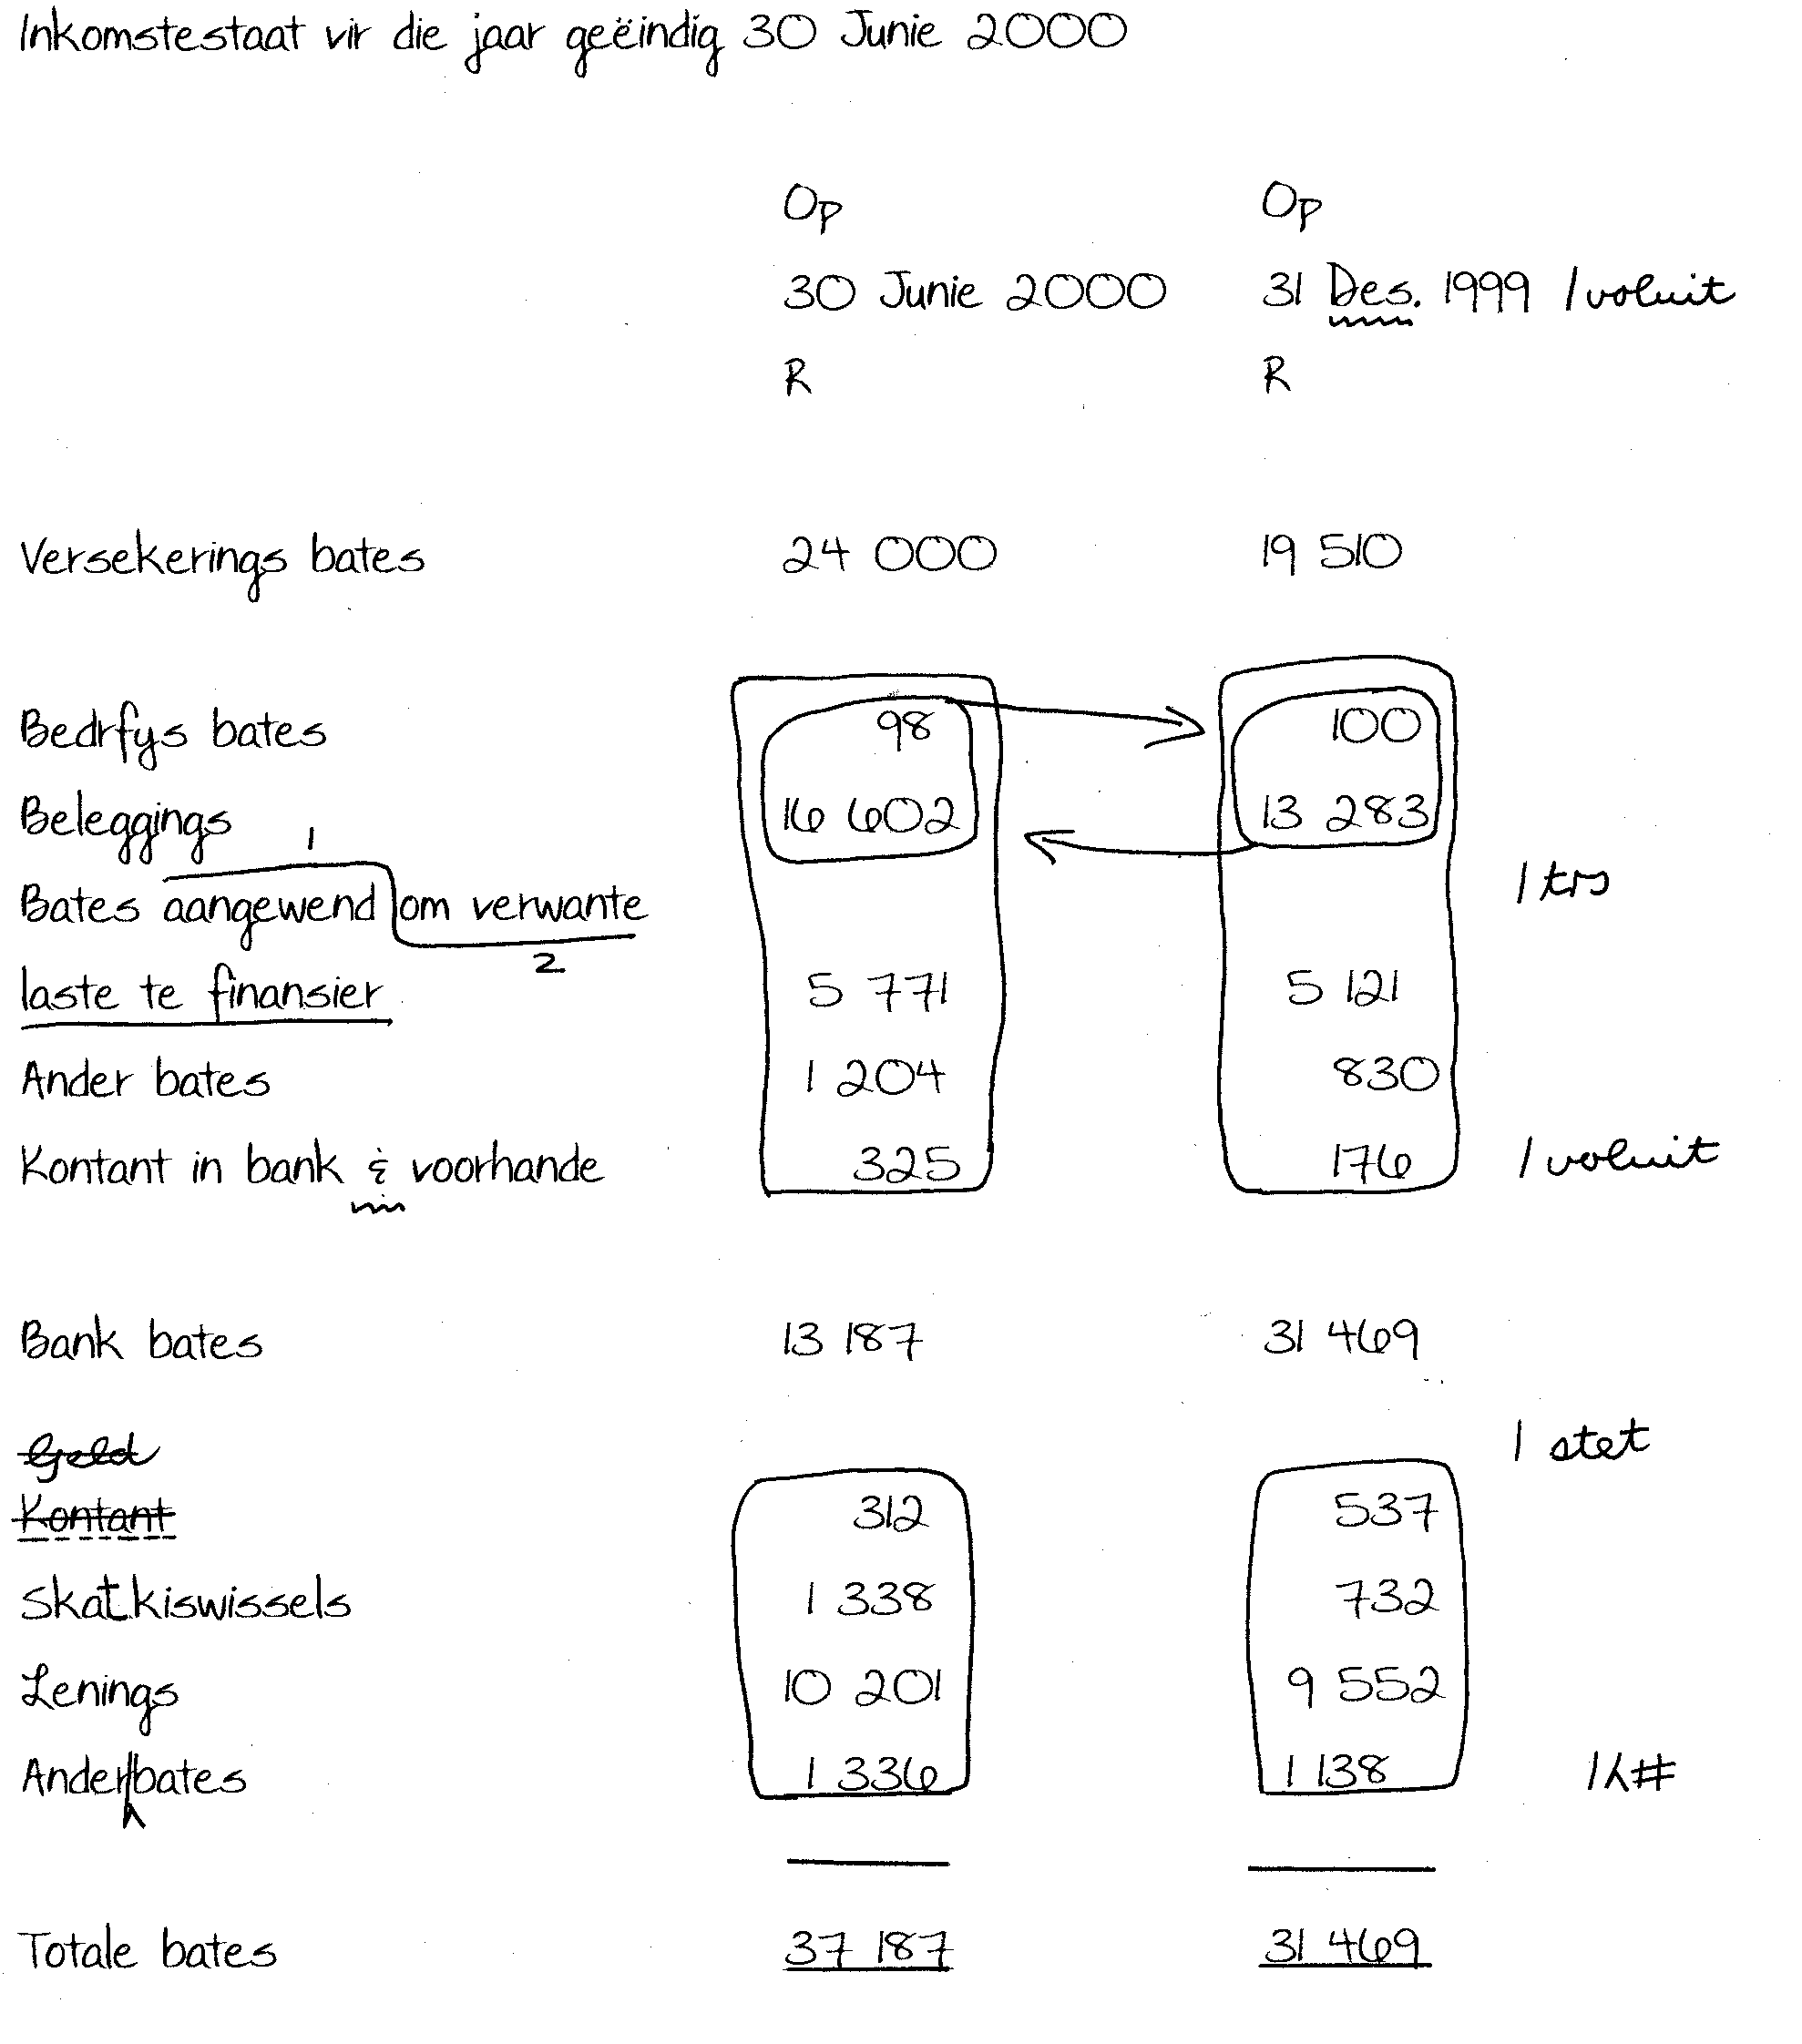 Inkomstestaat vir die jaar geëindig 30 Junie 2000
Op Op
30 Junie 2000 31 Des. 1999 / voluit
R R
Versekerings bates 24 000 19 510
Bedrfys bates 98 100
Beleggings 16 602 13 283
1
/ trs
Bates aangewend om verwante
2
laste te finansier 5 771 5 121
Ander bates 1 204 830
Kontant in bank & voorhande 325 176 / voluit
Bank bates 13 187 31 469
Geld / stet
Kontant 312 537
Skatkiswissels 1 338 732
Lenings 10 201 9 552
Ander/bates 1 336 1 138 / ⁁#
Totale bates 37 187 31 469